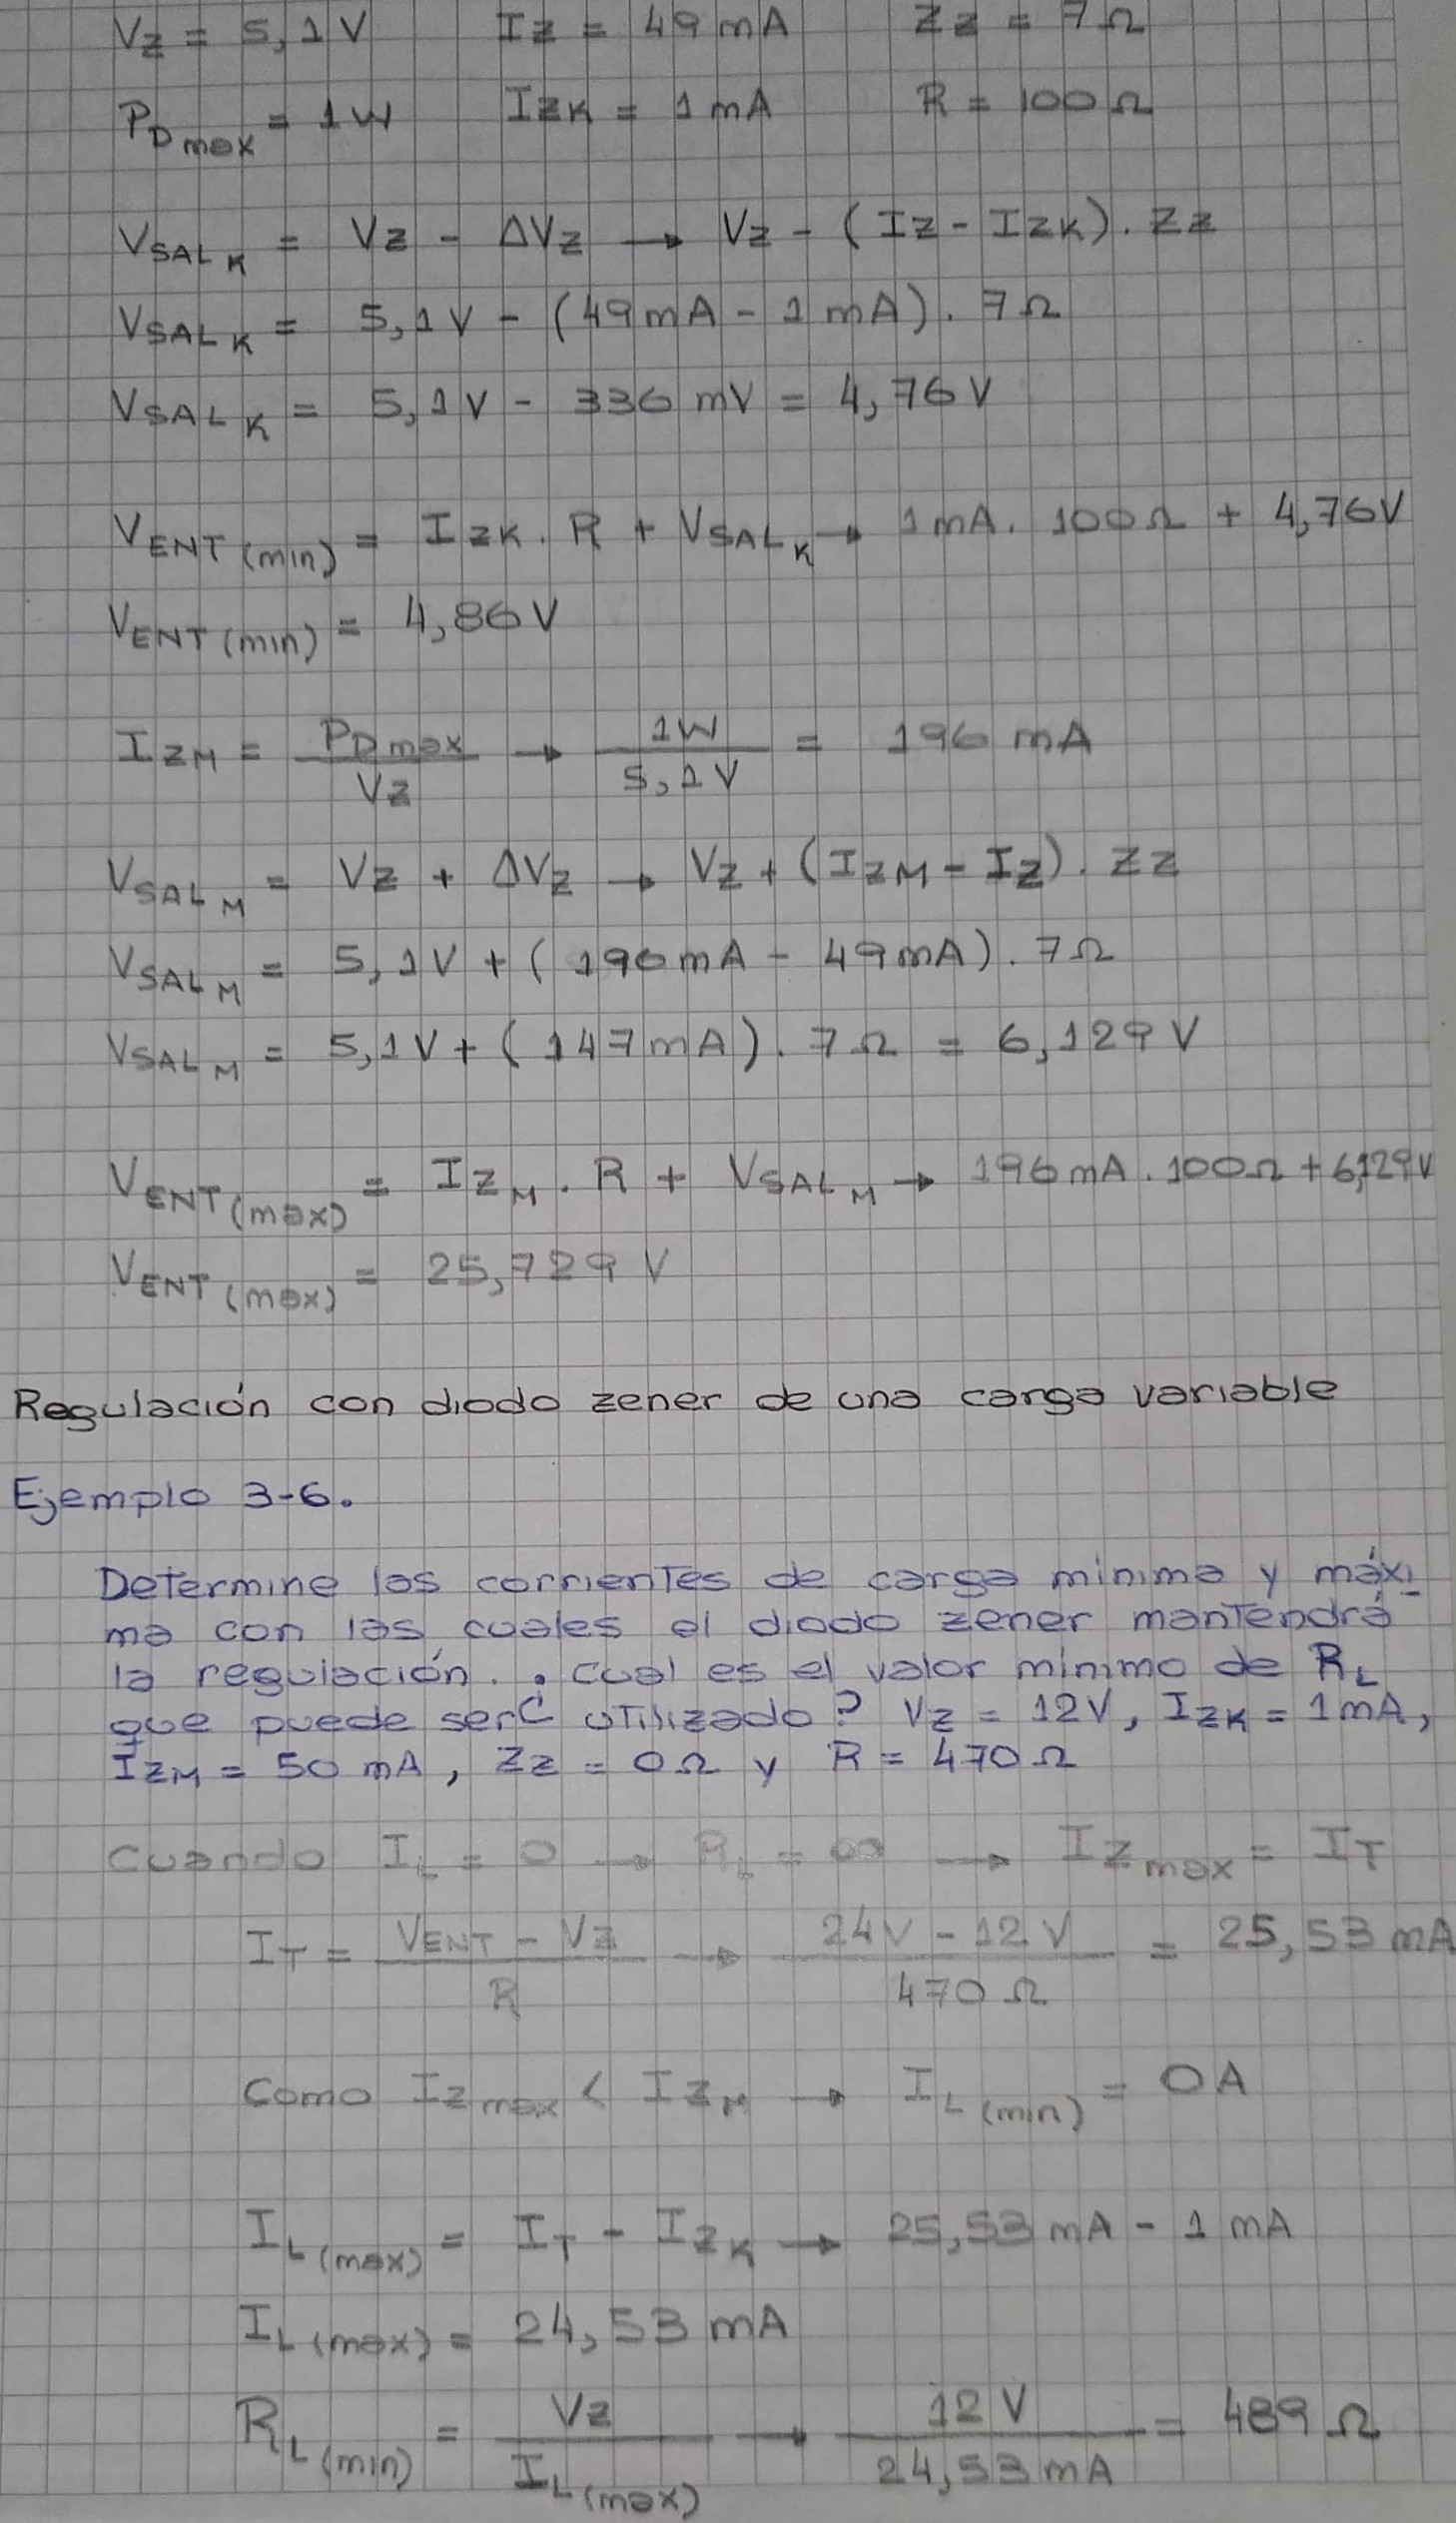 Vz = 5,1V   Iz = 49 mA   Zz = 7Ω
PDmax = 1W   IZK = 1 mA   R = 100Ω
VSALK = Vz - ΔVz → Vz - (Iz - IZK) . Zz
VSALK = 5,1V - (49mA - 1 mA) . 7Ω
VSALK = 5,1V - 336 mV = 4,76V
VENT(min) = IZK . R + VSALK → 1mA . 100Ω + 4,76V
VENT(min) = 4,86V
IZM = PDmax / Vz → 1W / 5,1V = 196 mA
VSALM = Vz + ΔVz → Vz + (IZM - Iz) . Zz
VSALM = 5,1V + (196mA - 49mA) . 7Ω
VSALM = 5,1V + (147mA) . 7Ω = 6,129V
VENT(max) = IZM . R + VSALM → 196mA . 100Ω + 6,129V
VENT(max) = 25,729 V
Regulación con diodo zener de una carga variable
Ejemplo 3-6.
Determine las corrientes de carga mínima y máxi-
ma con las cuales el diodo zener mantendrá
la regulación. ¿Cual es el valor mínimo de RL
que puede ser utilizado? Vz = 12V, IZK = 1mA,
IZM = 50 mA, Zz = 0Ω y R = 470Ω
Cuando IL = 0 → RL = ∞ → Izmax = IT
IT = VENT - Vz / R → 24V - 12V / 470Ω = 25,53 mA
Como Izmax < IZM → IL(min) = 0A
IL(max) = IT - IZK → 25,53 mA - 1 mA
IL(max) = 24,53 mA
RL(min) = Vz / IL(max) → 12V / 24,53mA = 489Ω